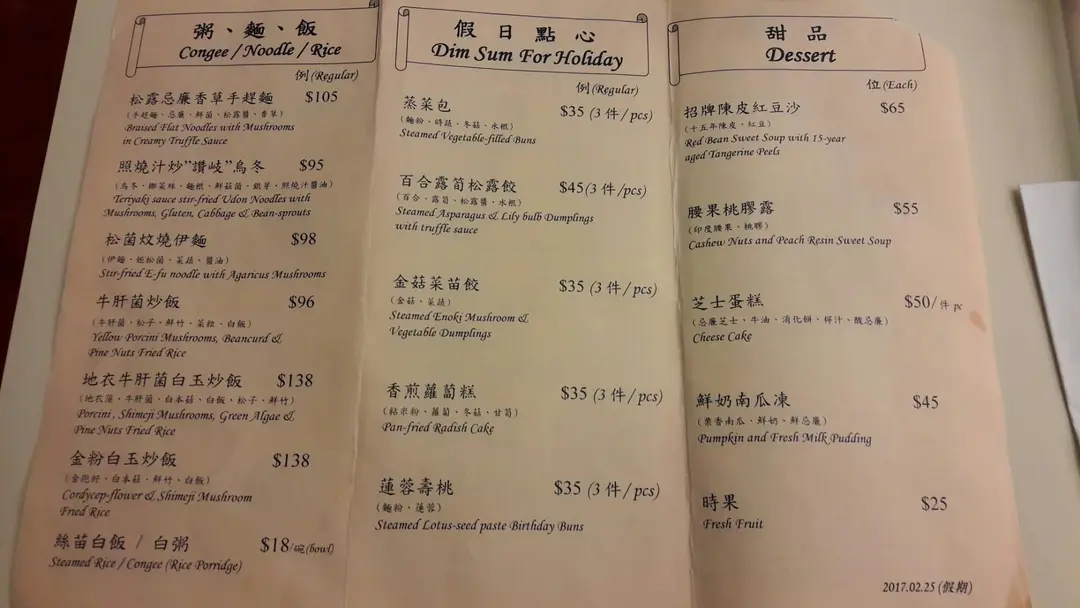 粥、麵、飯
Congee / Noodle / Rice
例 (Regular)
松露忌廉香草手趕麵 $105
(手趕麵、忌廉、鮮菌、松露醬、香草)
Braised Flat Noodles with Mushrooms
in Creamy Truffle Sauce
照燒汁炒”讚岐”烏冬 $95
(烏冬、椰菜絲、麵根、鮮菇菌、銀芽、照燒汁醬油)
Teriyaki sauce stir-fried Udon Noodles with
Mushrooms, Gluten, Cabbage & Bean-sprouts
松菌炆燒伊麵 $98
(伊麵、姬松菌、菜蔬、醬油)
Stir-fried E-fu noodle with Agaricus Mushrooms
牛肝菌炒飯 $96
(牛肝菌、松子、鮮竹、菜粒、白飯)
Yellow Porcini Mushrooms, Beancurd &
Pine Nuts Fried Rice
地衣牛肝菌白玉炒飯 $138
(地衣藻、牛肝菌、白本菇、白飯、松子、鮮竹)
Porcini, Shimeji Mushrooms, Green Algae &
Pine Nuts Fried Rice
金粉白玉炒飯 $138
白本菇、鮮竹、白飯)
Cordycep-flower & Shimeji Mushroom
Fried Rice
絲苗白飯 / 白粥 $18/碗(bowl)
Steamed Rice / Congee (Rice Porridge)
假日點心
Dim Sum For Holiday
例 (Regular)
蒸菜包 $35 (3 件/pcs)
(麵粉、時蔬、冬菇、水根)
Steamed Vegetable-filled Buns
百合露筍松露餃 $45(3 件/pcs)
(百合、露筍、松露醬、水根)
Steamed Asparagus & Lily bulb Dumplings
with truffle sauce
金菇菜苗餃 $35 (3 件/pcs)
(金菇、菜蔬)
Steamed Enoki Mushroom &
Vegetable Dumplings
香煎蘿蔔糕 $35 (3 件/pcs)
(粘米粉、蘿蔔、冬菇、甘筍)
Pan-fried Radish Cake
蓮蓉壽桃 $35 (3 件/pcs)
(麵粉、蓮蓉)
Steamed Lotus-seed paste Birthday Buns
甜品
Dessert
位 (Each)
招牌陳皮紅豆沙 $65
(十五年陳皮、紅豆)
Red Bean Sweet Soup with 15-year
aged Tangerine Peels
腰果桃膠露 $55
(印度腰果、桃膠)
Cashew Nuts and Peach Resin Sweet Soup
芝士蛋糕 $50/件 pc
(忌廉芝士、牛油、消化餅、檸汁、酸忌廉)
Cheese Cake
鮮奶南瓜凍 $45
(栗香南瓜、鮮奶、鮮忌廉)
Pumpkin and Fresh Milk Pudding
時果 $25
Fresh Fruit
2017.02.25 (假期)